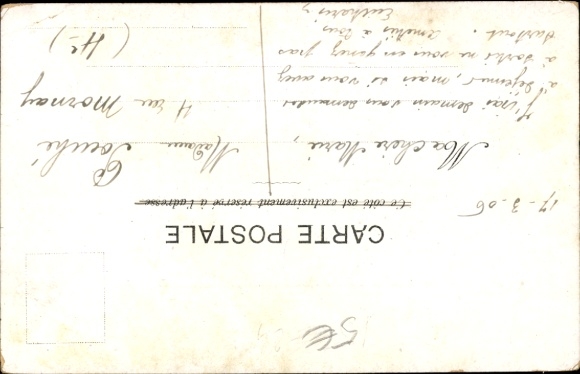 CARTE POSTALE
Ce côté est exclusivement réservé à l'adresse
17-3-06
Ma chère Marie,
J'irai demain vous demander
à déjeuner, mais si vous avez
à sortir ne vous en gênez pas
surtout. Amitiés à tous
Madame
4 rue Mornay
5€